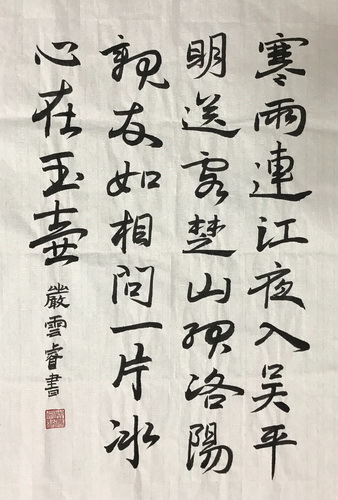 寒雨連江夜入吴平
明送客楚山孤洛陽
親友如相問一片冰
心在玉壺
嚴雲睿書